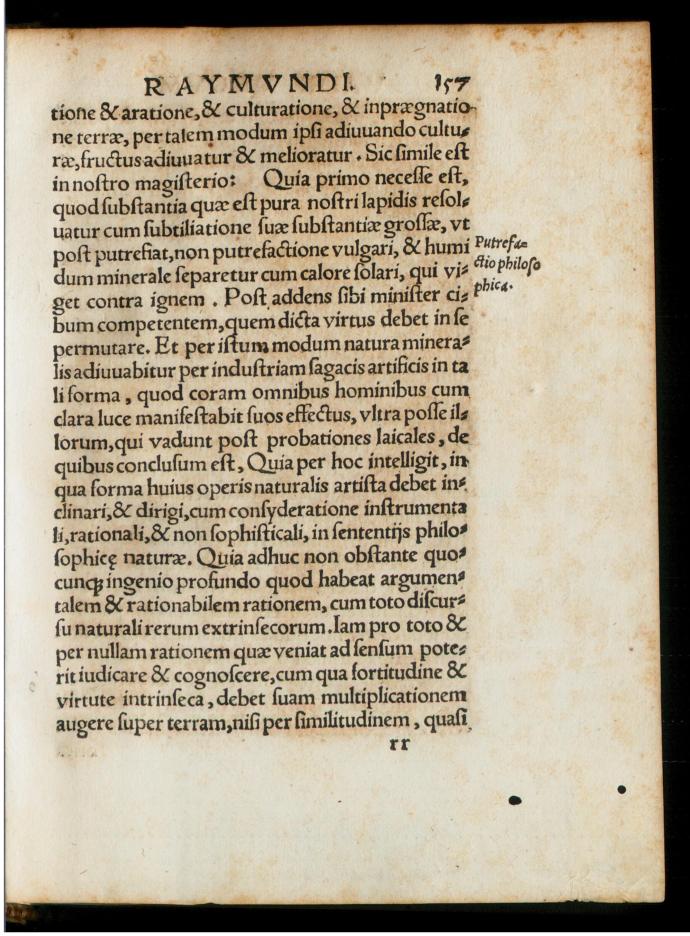 RAYMVNDI. 157
tione & aratione, & culturatione, & inprægnatio-
ne terræ, per talem modum ipsi adiuuando cultu-
ræ, fructus adiuuatur & melioratur. Sic simile est
in nostro magisterio: Quia primo necesse est,
quod substantia quæ est pura nostri lapidis resol-
uatur cum subtiliatione suæ substantiæ grossæ, vt
post putrefiat, non putrefactione vulgari, & humi
dum minerale separetur cum calore solari, qui vi-
get contra ignem. Post addens sibi minister ci-
bum competentem, quem dicta virtus debet in se
permutare. Et per istum modum natura minera-
lis adiuuabitur per industriam sagacis artificis in ta
li forma, quod coram omnibus hominibus cum
clara luce manifestabit suos effectus, vltra posse il-
lorum, qui vadunt post probationes laicales, de
quibus conclusum est, Quia per hoc intelligit, in
qua forma huius operis naturalis artista debet in-
clinari, & dirigi, cum consyderatione instrumenta
li, rationali, & non sophisticali, in sententijs philo-
sophicę naturæ. Quia adhuc non obstante quo-
cunqꝫ ingenio profundo quod habeat argumen-
talem & rationabilem rationem, cum toto discur-
su naturali rerum extrinsecorum. Iam pro toto &
per nullam rationem quæ veniat ad sensum pote-
rit iudicare & cognoscere, cum qua fortitudine &
virtute intrinseca, debet suam multiplicationem
augere super terram, nisi per similitudinem, quasi
rr
Putrefa-
ctio philoso
phica.